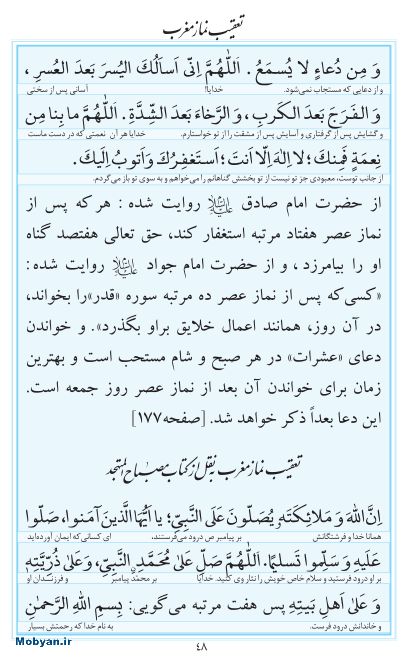 تعقیب نماز مغرب
وَ مِن دُعاءٍ لا یُسمَعُ. اَللّٰهُمَّ اِنّی اَساَلُکَ الیُسرَ بَعدَ العُسرِ،
و از دعایی که مستجاب نمی‌شود. خدایا! آسانی پس از سختی
وَ الفَرَجَ بَعدَ الکَربِ، وَ الرَّخاءَ بَعدَ الشِّدَّةِ. اَللّٰهُمَّ ما بِنا مِن
و گشایش پس از گرفتاری و آسایش پس از مشقت را از تو خواستارم. خدایا هر آن نعمتی که در دست ماست
نِعمَةٍ فَمِنکَ؛ لا اِلٰهَ اِلّا اَنتَ؛ اَستَغفِرُکَ وَ اَتوبُ اِلَیکَ.
از جانب توست، معبودی جز تو نیست از تو بخشش گناهانم را می‌خواهم و به سوی تو باز می‌گردم.
از حضرت امام صادق علیه‌السلام روایت شده: هر که پس از
نماز عصر هفتاد مرتبه استغفار کند، حق تعالی هفتصد گناه
او را بیامرزد، و از حضرت امام جواد علیه‌السلام روایت شده:
«کسی‌که پس از نماز عصر ده مرتبه سوره «قدر»را بخواند،
در آن روز، همانند اعمال خلایق براو بگذرد». و خواندن
دعای «عشرات» در هر صبح و شام مستحب است و بهترین
زمان برای خواندن آن بعد از نماز عصر روز جمعه است.
این دعا بعداً ذکر خواهد شد. [صفحه۱۷۷]
تعقیب نماز مغرب به نقل از کتاب مصباح المتهجد
اِنَّ اللهَ وَ مَلائِکَتَهٗ یُصَلّونَ عَلَی النَّبِیِّ؛ یا اَیُّهَا الَّذینَ آمَنوا، صَلّوا
همانا خدا و فرشتگانش بر پیامبر ص درود می‌فرستند، ای کسانی که ایمان آورده‌اید
عَلَیهِ وَ سَلِّموا تَسلیمًا. اَللّٰهُمَّ صَلِّ عَلیٰ مُحَمَّدٍ النَّبِیِّ، وَ عَلیٰ ذُرِّیَّتِهٖ
بر او درود فرستید و سلام خاص خویش را نثار وی کنید. خدایا بر محمدؐ پیامبر و فرزندان او
وَ عَلیٰ اَهلِ بَیتِهٖ پس هفت مرتبه می‌گویی: بِسمِ اللهِ الرَّحمٰنِ
و خاندانش درود فرست. به نام خدا که رحمتش بسیار
۴۸
Mobyan.ir